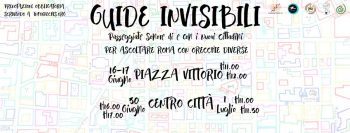 PRENOTAZIONE OBBLIGATORIA
GUIDE INVISIBILI
Passeggiate Sonore di e con i nuovi cittadini
PER ASCOLTARE ROMA CON ORECCHIE DIVERSE
16-17 Giugno PIAZZA VITTORIO H11.00 H18.00
H16.00 H17.00 30 Giugno CENTRO CITTÀ 1 Luglio H11.00 H11.30